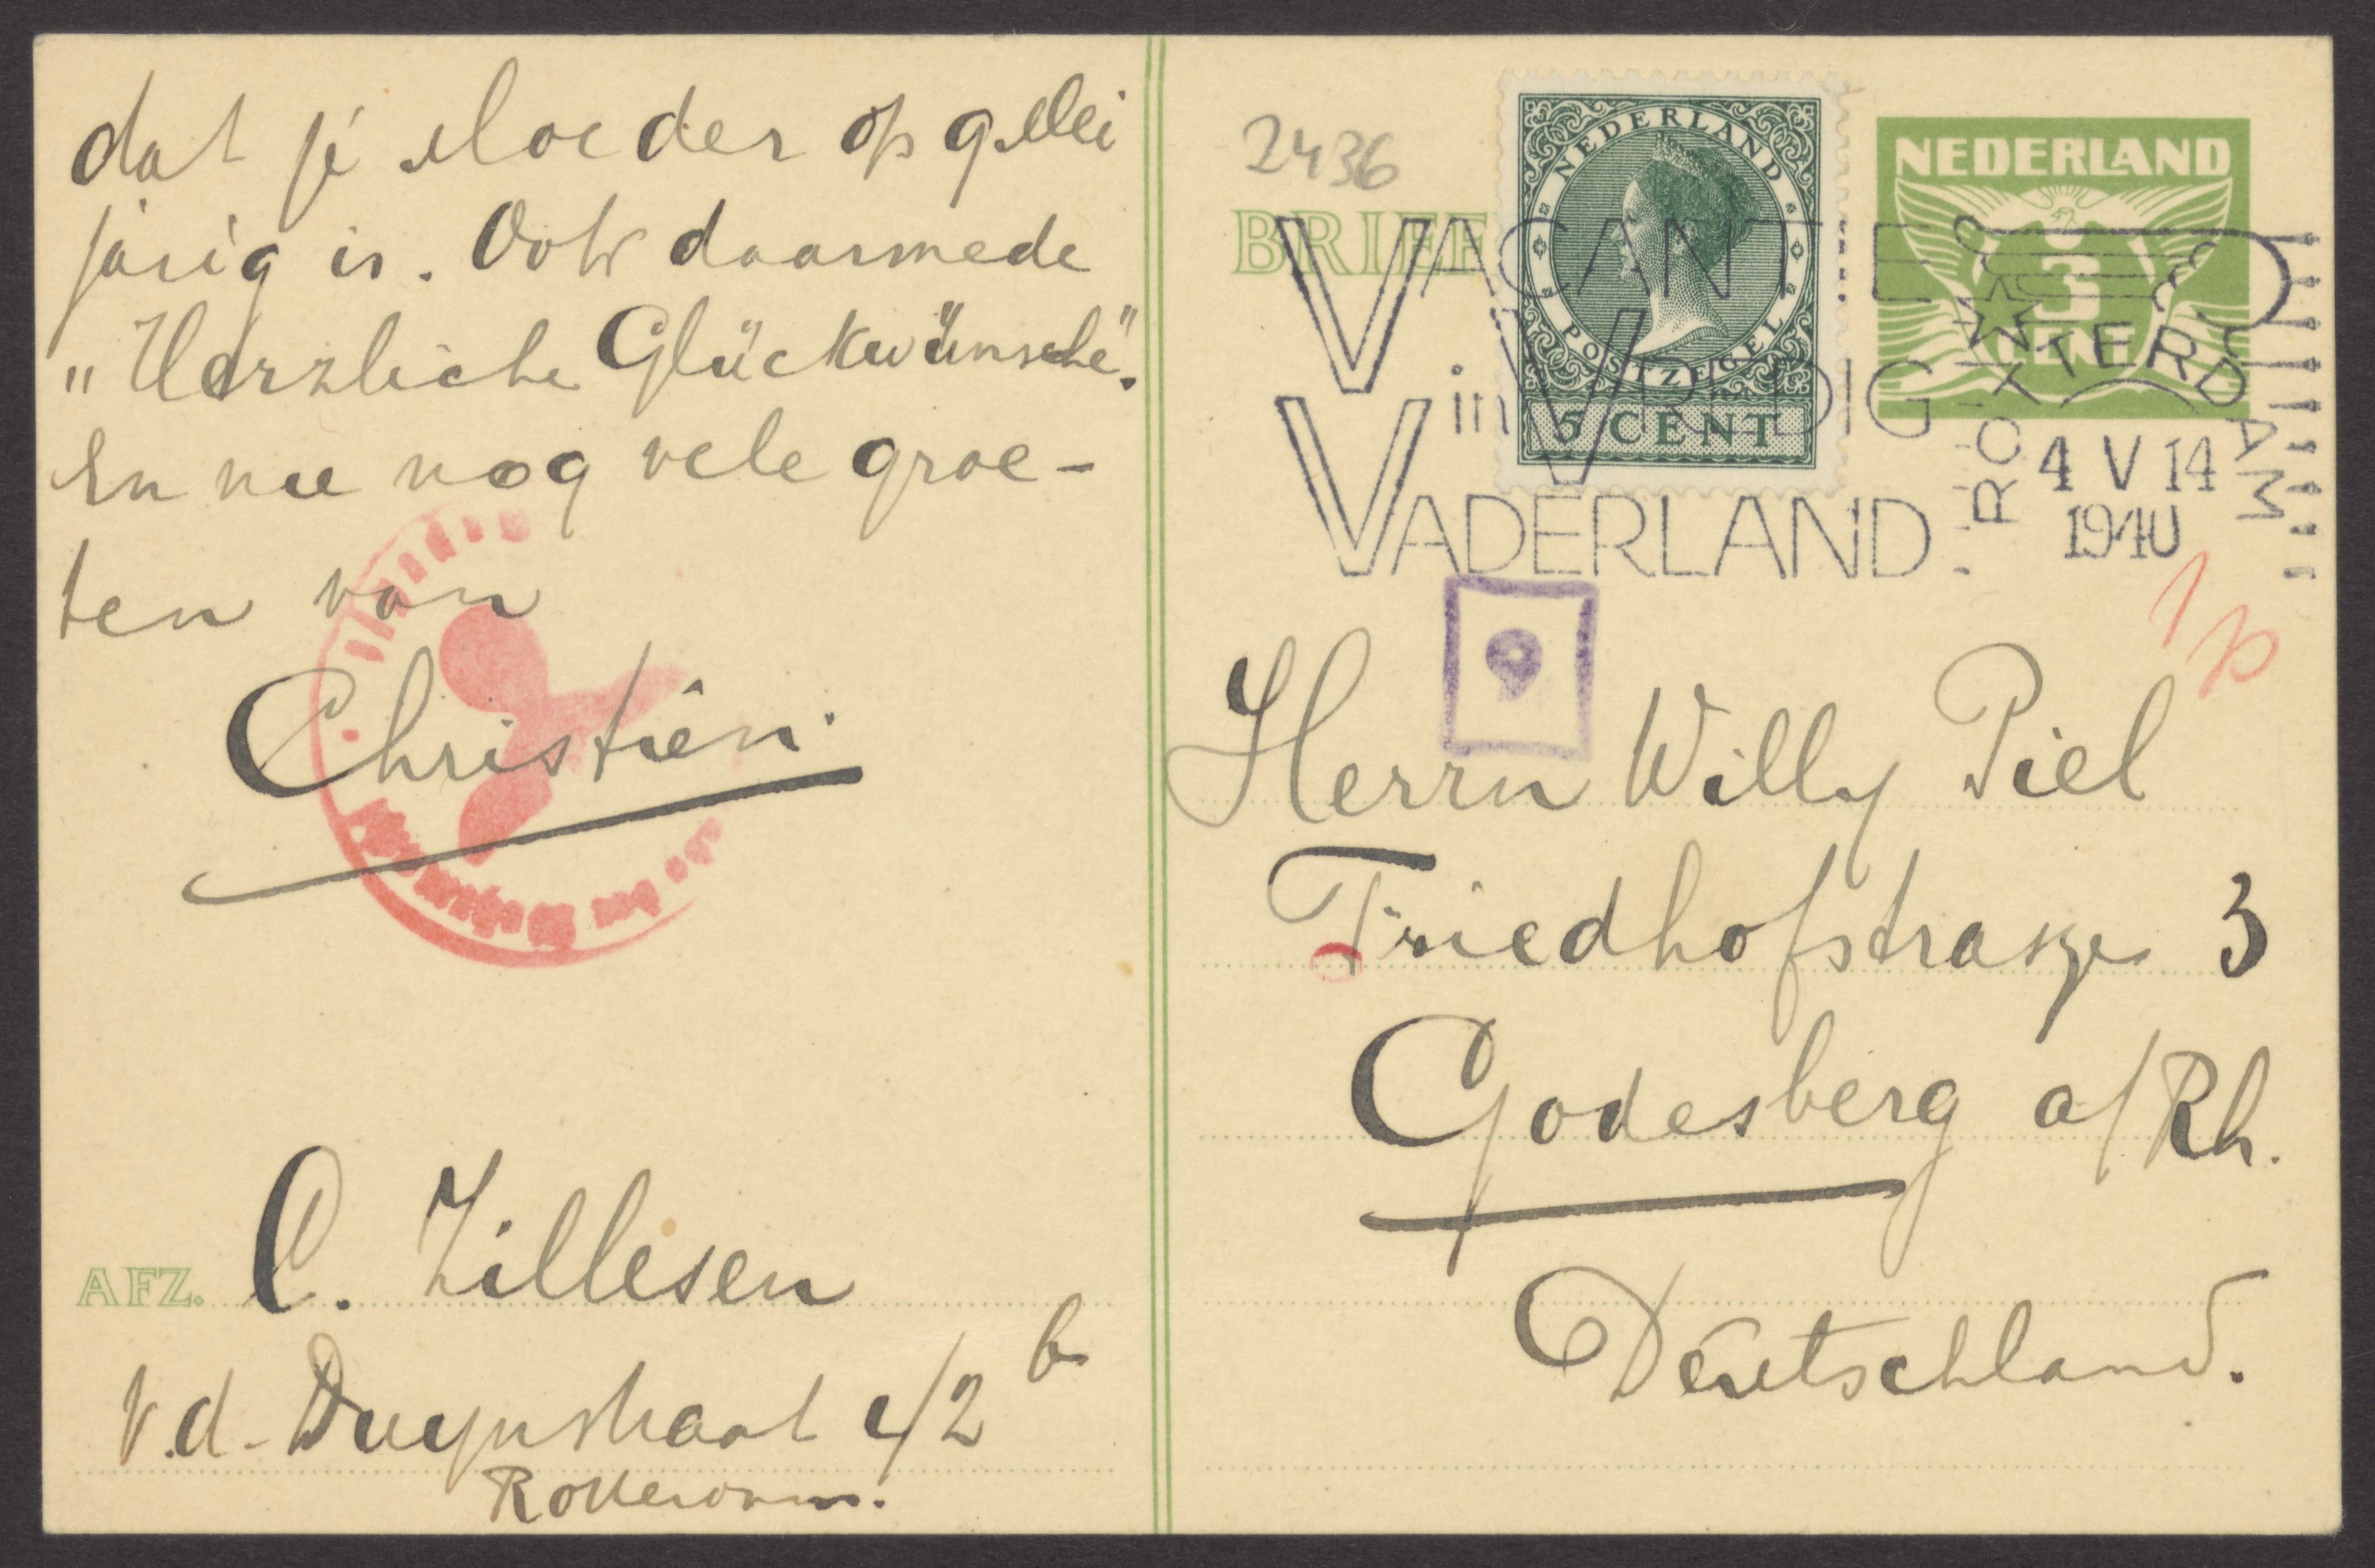 dat je Moeder op 9 Mei
jarig is. Ook daarmede
„Herzliche Glückwünsche".
En nu nog vele groe-
ten van
Christien.
AFZ. C. Zillesen
v.d. Duynstraat 42 b
Rotterdam.
2436
BRIEF
NEDERLAND
POSTZEGEL
5 CENT
NEDERLAND
3
CENT
VACANTIE
in VREDIG
VADERLAND
ROTTERDAM
4 V 14
1940
9
Herrn Willy Piel
Friedhofstrasze 3
Godesberg a/Rh.
Deutschland.